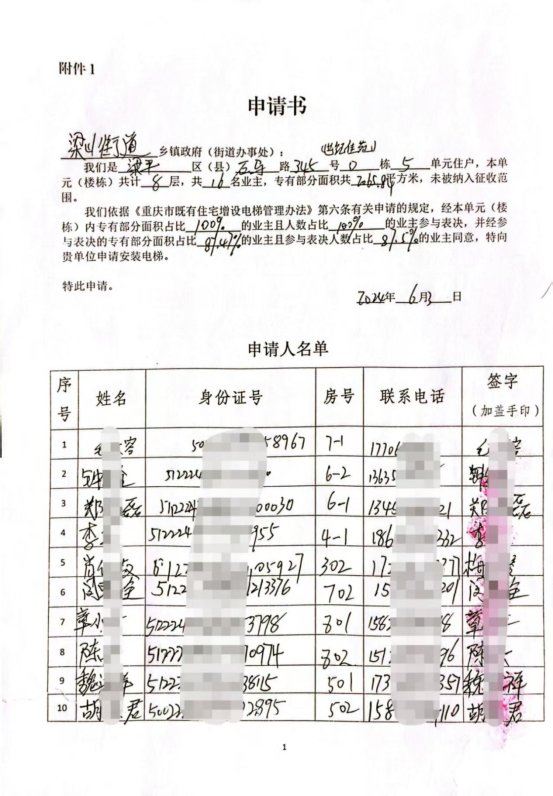 附件 1
申请书
梁山街道 乡镇政府（街道办事处）：
我们是 梁平 区（县）石马 路 345 号 0 栋 5 单元住户，本单
元（楼栋）共计 8 层，共 16 名业主，专有部分面积共 平方米，未被纳入征收范
围。
我们依据《重庆市既有住宅增设电梯管理办法》第六条有关申请的规定，经本单元（楼
栋）内专有部分面积占比 100% 的业主且人数占比 100% 的业主参与表决，并经参
与表决的专有部分面积占比 87.41% 的业主且参与表决人数占比 87.5% 的业主同意，特向
贵单位申请安装电梯。
特此申请。
2024年 6月3 日
申请人名单
序号 姓名 身份证号 房号 联系电话 签字（加盖手印）
1 容 50 58967 7-1 17706 容
2 512224 6-2 13635
3 郑 磊 512224 00030 6-1 1346 21 郑 磊
4 李 512224 955 4-1 186 332 李
5 肖 05927 302 17 37
6 5122 1213376 702 15 201
7 章 512224 3798 801 158 8 章
8 陈 51222 10974 802 151 96 陈
9 魏 5122 3615 501 173 357 魏 祥
10 胡 君 50022 2895 502 158 110 胡 君
1